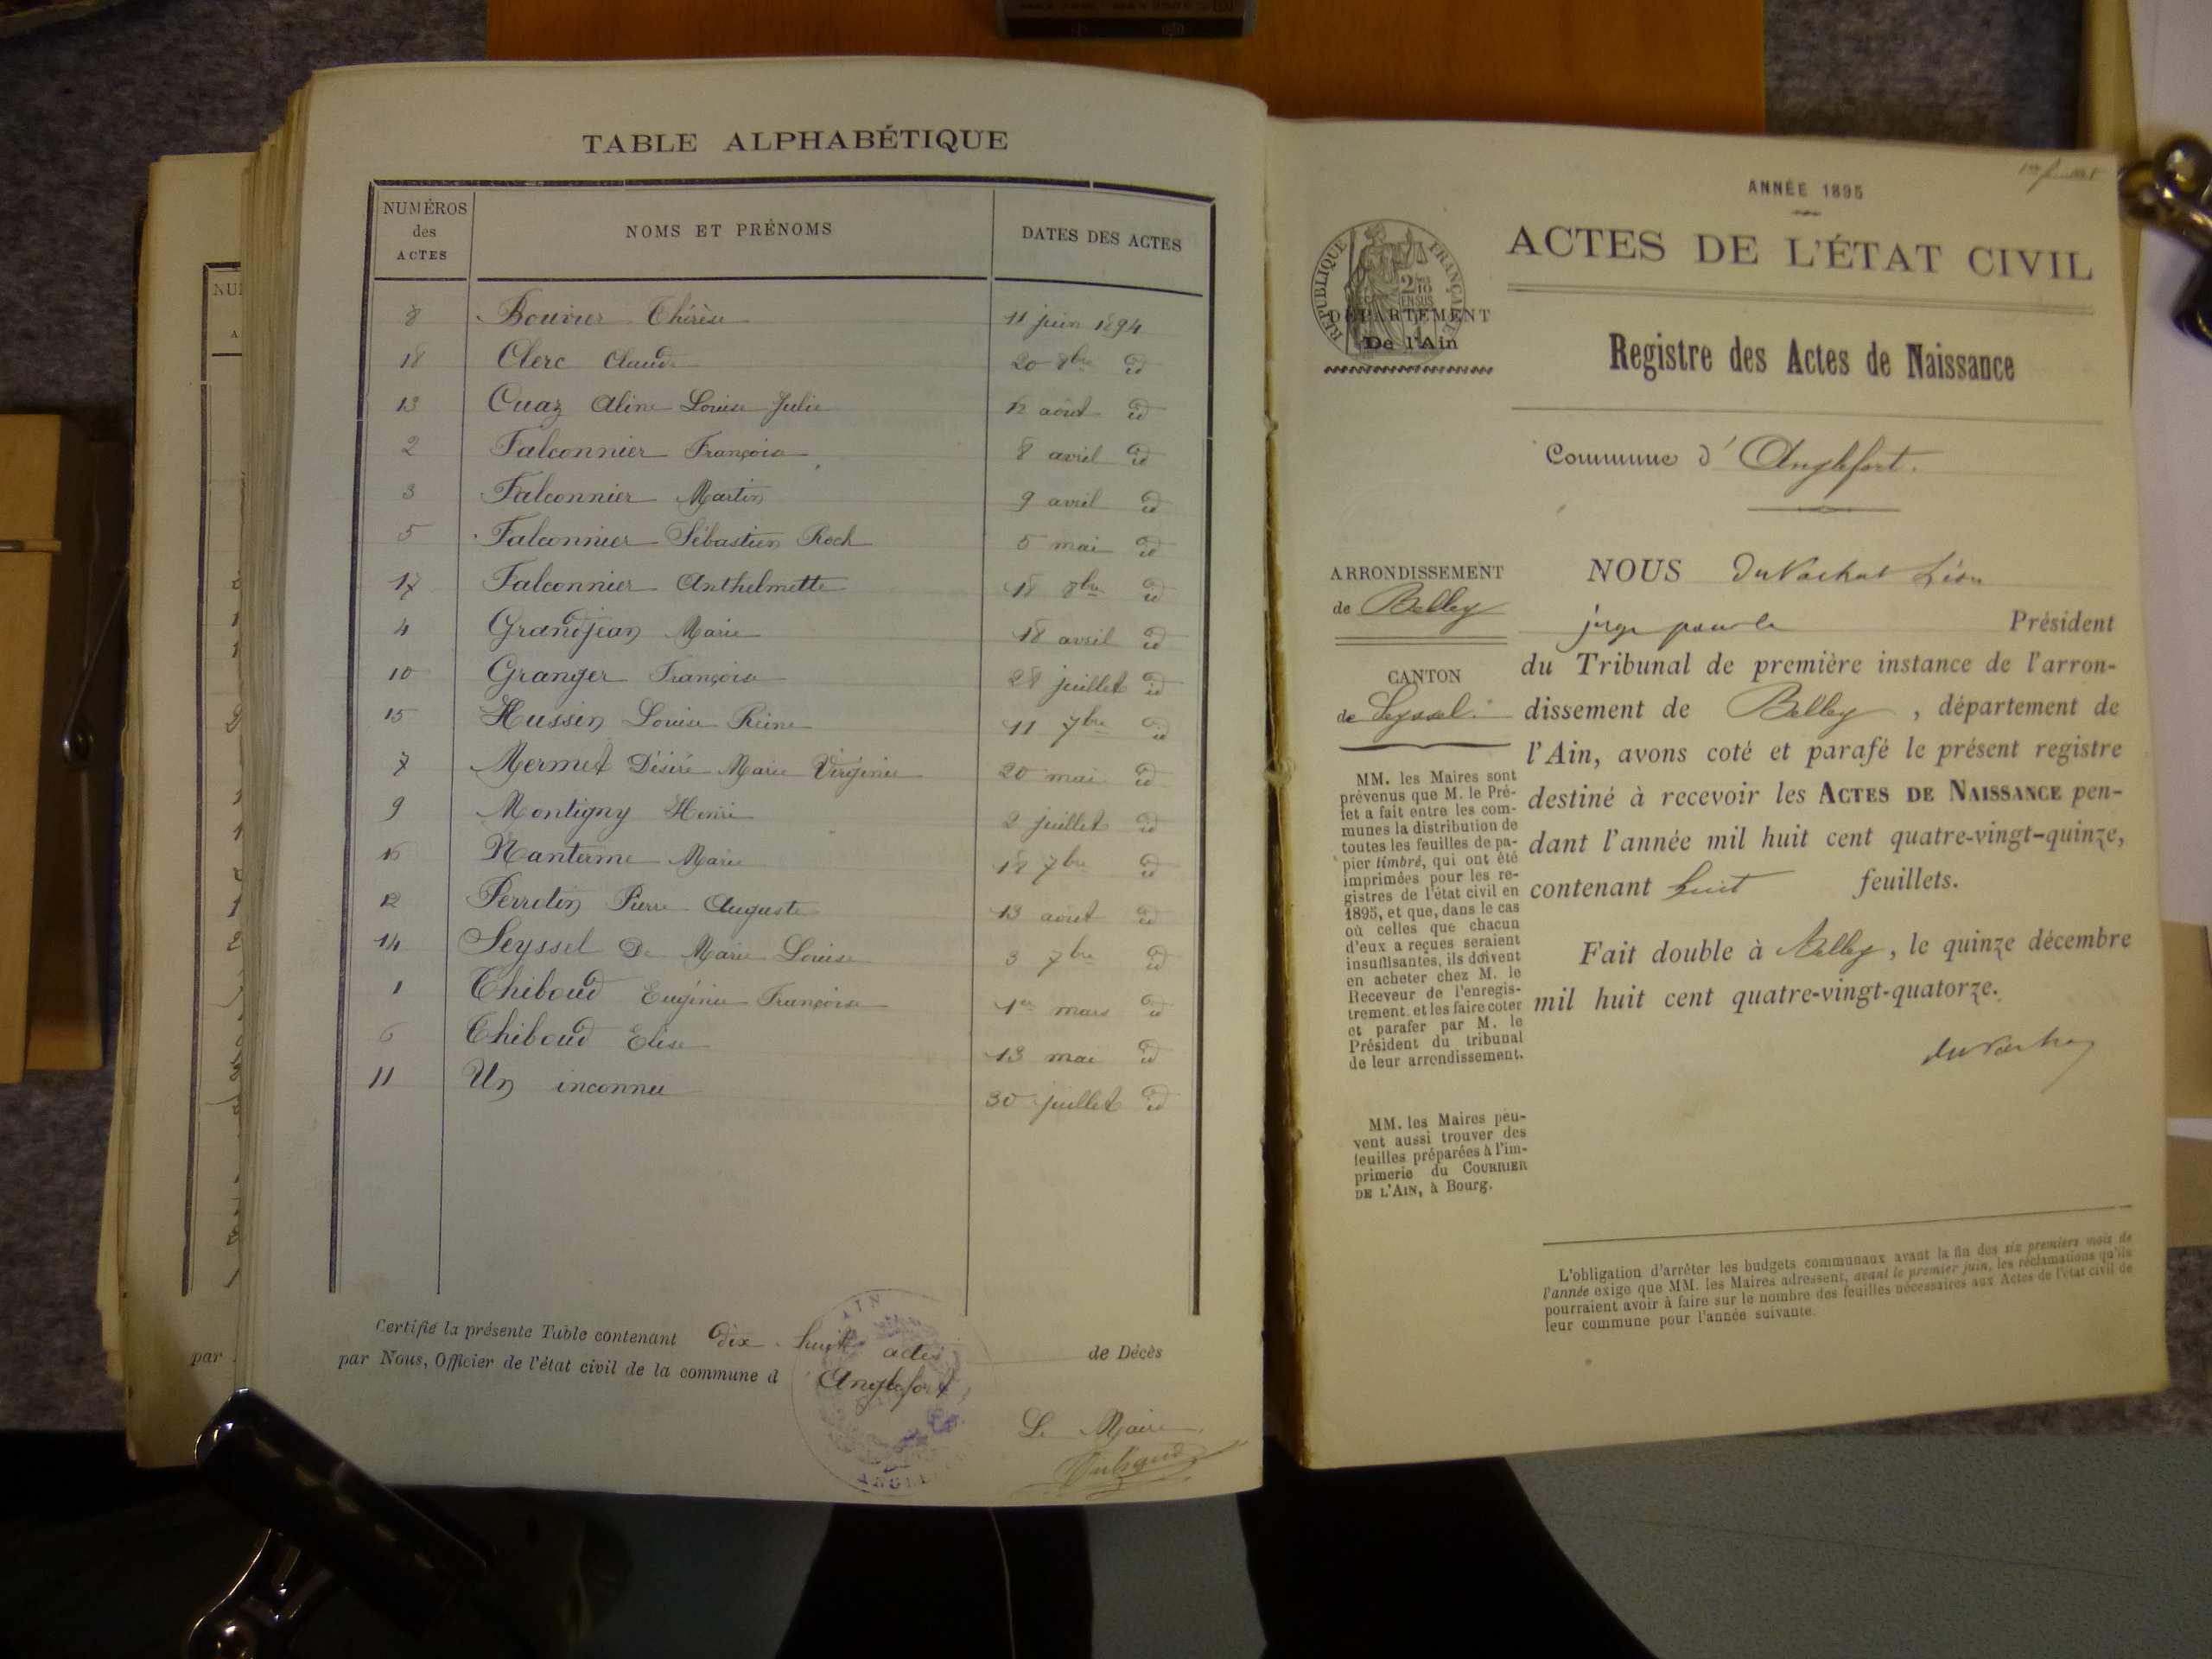 TABLE ALPHABÉTIQUE
NUMÉROS des ACTES NOMS ET PRÉNOMS DATES DES ACTES
8 Bouvier Thérèse 11 juin 1894
18 Clerc Claude 20 8bre id
13 Cuaz Aline Louise Julie 12 août id
2 Falconnier Françoise 8 avril id
3 Falconnier Martin 9 avril id
5 Falconnier Sébastien Roch 5 mai id
17 Falconnier Anthelmette 18 8bre id
4 Grandjean Marie 18 avril id
10 Granger Françoise 28 juillet id
15 Hussin Louise Reine 11 7bre id
7 Mermet Désiré Marie Virginie 20 mai id
9 Montigny Henri 2 juillet id
16 Nanterme Marie 18 7bre id
12 Perrotin Pierre Auguste 13 août id
14 Seyssel De Marie Louise 3 7bre id
1 Thiboud Eugénie Françoise 1er mars id
6 Thiboud Elise 13 mai id
11 Un inconnu 30 juillet id
Certifié la présente Table contenant dix-huit actes de Décès
par Nous, Officier de l'état civil de la commune d Anglefort
Le Maire
par
ANNÉE 1895
ACTES DE L'ÉTAT CIVIL
RÉPUBLIQUE FRANÇAISE
2/10 EN SUS
DÉPARTEMENT
De l'Ain
Registre des Actes de Naissance
Commune d'Anglefort.
ARRONDISSEMENT
de Belley
CANTON
de Seyssel.
MM. les Maires sont
prévenus que M. le Pré-
fet a fait entre les com-
munes la distribution de
toutes les feuilles de pa-
pier timbré, qui ont été
imprimées pour les re-
gistres de l'état civil en
1895, et que, dans le cas
où celles que chacun
d'eux a reçues seraient
insuffisantes, ils doivent
en acheter chez M. le
Receveur de l'enregis-
trement, et les faire coter
et parafer par M. le
Président du tribunal
de leur arrondissement.
MM. les Maires peu-
vent aussi trouver des
feuilles préparées à l'im-
primerie du COURRIER
DE L'AIN, à Bourg.
NOUS DuVachat Léon
juge pour le Président
du Tribunal de première instance de l'arron-
dissement de Belley, département de
l'Ain, avons coté et parafé le présent registre
destiné à recevoir les ACTES DE NAISSANCE pen-
dant l'année mil huit cent quatre-vingt-quinze,
contenant huit feuillets.
Fait double à Belley, le quinze décembre
mil huit cent quatre-vingt-quatorze.
DuVachat
L'obligation d'arrêter les budgets communaux avant la fin des six premiers mois de
l'année exige que MM. les Maires adressent, avant le premier juin, les réclamations qu'ils
pourraient avoir à faire sur le nombre des feuilles nécessaires aux Actes de l'état civil de
leur commune pour l'année suivante.